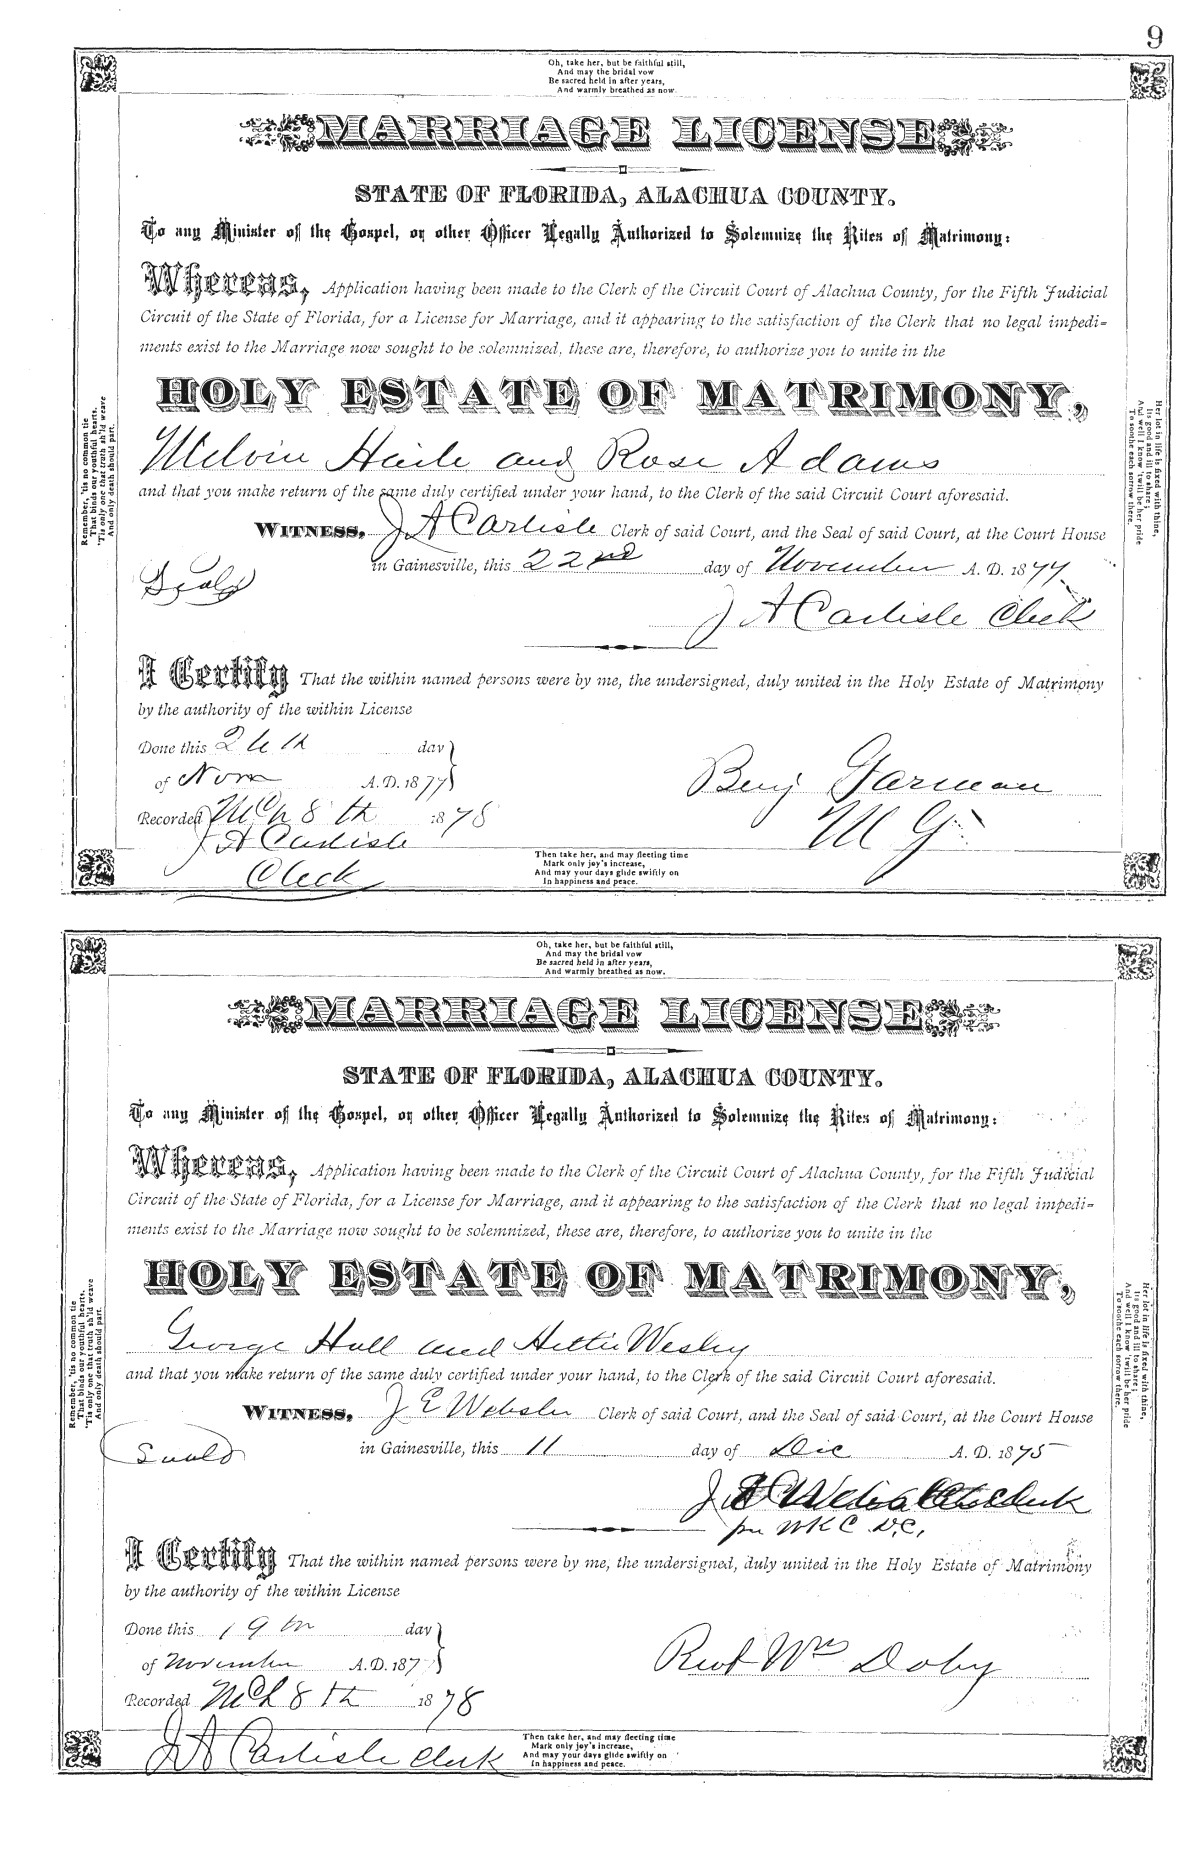 9
Oh, take her, but be faithful still,
And may the bridal vow
Be sacred held in after years,
And warmly breathed as now.
MARRIAGE LICENSE
STATE OF FLORIDA, ALACHUA COUNTY.
To any Minister of the Gospel, or other Officer Legally Authorized to Solemnize the Rites of Matrimony:
Whereas, Application having been made to the Clerk of the Circuit Court of Alachua County, for the Fifth Judicial
Circuit of the State of Florida, for a License for Marriage, and it appearing to the satisfaction of the Clerk that no legal impedi-
ments exist to the Marriage now sought to be solemnized, these are, therefore, to authorize you to unite in the
HOLY ESTATE OF MATRIMONY,
Melvin Haile and Rose Adams
and that you make return of the same duly certified under your hand, to the Clerk of the said Circuit Court aforesaid.
WITNESS, J A Carlisle Clerk of said Court, and the Seal of said Court, at the Court House
in Gainesville, this 22nd day of November A. D. 1877
Seal
J A Carlisle Clerk
I Certify That the within named persons were by me, the undersigned, duly united in the Holy Estate of Matrimony
by the authority of the within License
Done this day
of Novm A. D. 1877
Benj Garman
Recorded Mch 8th 1878
M G
J A Carlisle
Clerk
Then take her, and may fleeting time
Mark only joy's increase,
And may your days glide swiftly on
In happiness and peace.
Remember, 'tis no common tie
That binds our youthful hearts,
'Tis only one that truth sh'ld weave
And only death should part.
Her lot in life is fixed with thine,
Its good and ill to share;
And well I know 'twill be her pride
To soothe each sorrow there.
Oh, take her, but be faithful still,
And may the bridal vow
Be sacred held in after years,
And warmly breathed as now.
MARRIAGE LICENSE
STATE OF FLORIDA, ALACHUA COUNTY.
To any Minister of the Gospel, or other Officer Legally Authorized to Solemnize the Rites of Matrimony:
Whereas, Application having been made to the Clerk of the Circuit Court of Alachua County, for the Fifth Judicial
Circuit of the State of Florida, for a License for Marriage, and it appearing to the satisfaction of the Clerk that no legal impedi-
ments exist to the Marriage now sought to be solemnized, these are, therefore, to authorize you to unite in the
HOLY ESTATE OF MATRIMONY,
George Hall and Hettie Wesley
and that you make return of the same duly certified under your hand, to the Clerk of the said Circuit Court aforesaid.
WITNESS, J E Webster Clerk of said Court, and the Seal of said Court, at the Court House
in Gainesville, this 11 day of Dec A. D. 1875
J Clerk
per W K C D.C.
I Certify That the within named persons were by me, the undersigned, duly united in the Holy Estate of Matrimony
by the authority of the within License
Done this 19th day
of November A. D. 187
Revt Wm Doby
Recorded Mch 8th 1878
J A Carlisle clerk
Then take her, and may fleeting time
Mark only joy's increase,
And may your days glide swiftly on
In happiness and peace.
Remember, 'tis no common tie
That binds our youthful hearts,
'Tis only one that truth sh'ld weave
And only death should part.
Her lot in life is fixed with thine,
Its good and ill to share;
And well I know 'twill be her pride
To soothe each sorrow there.